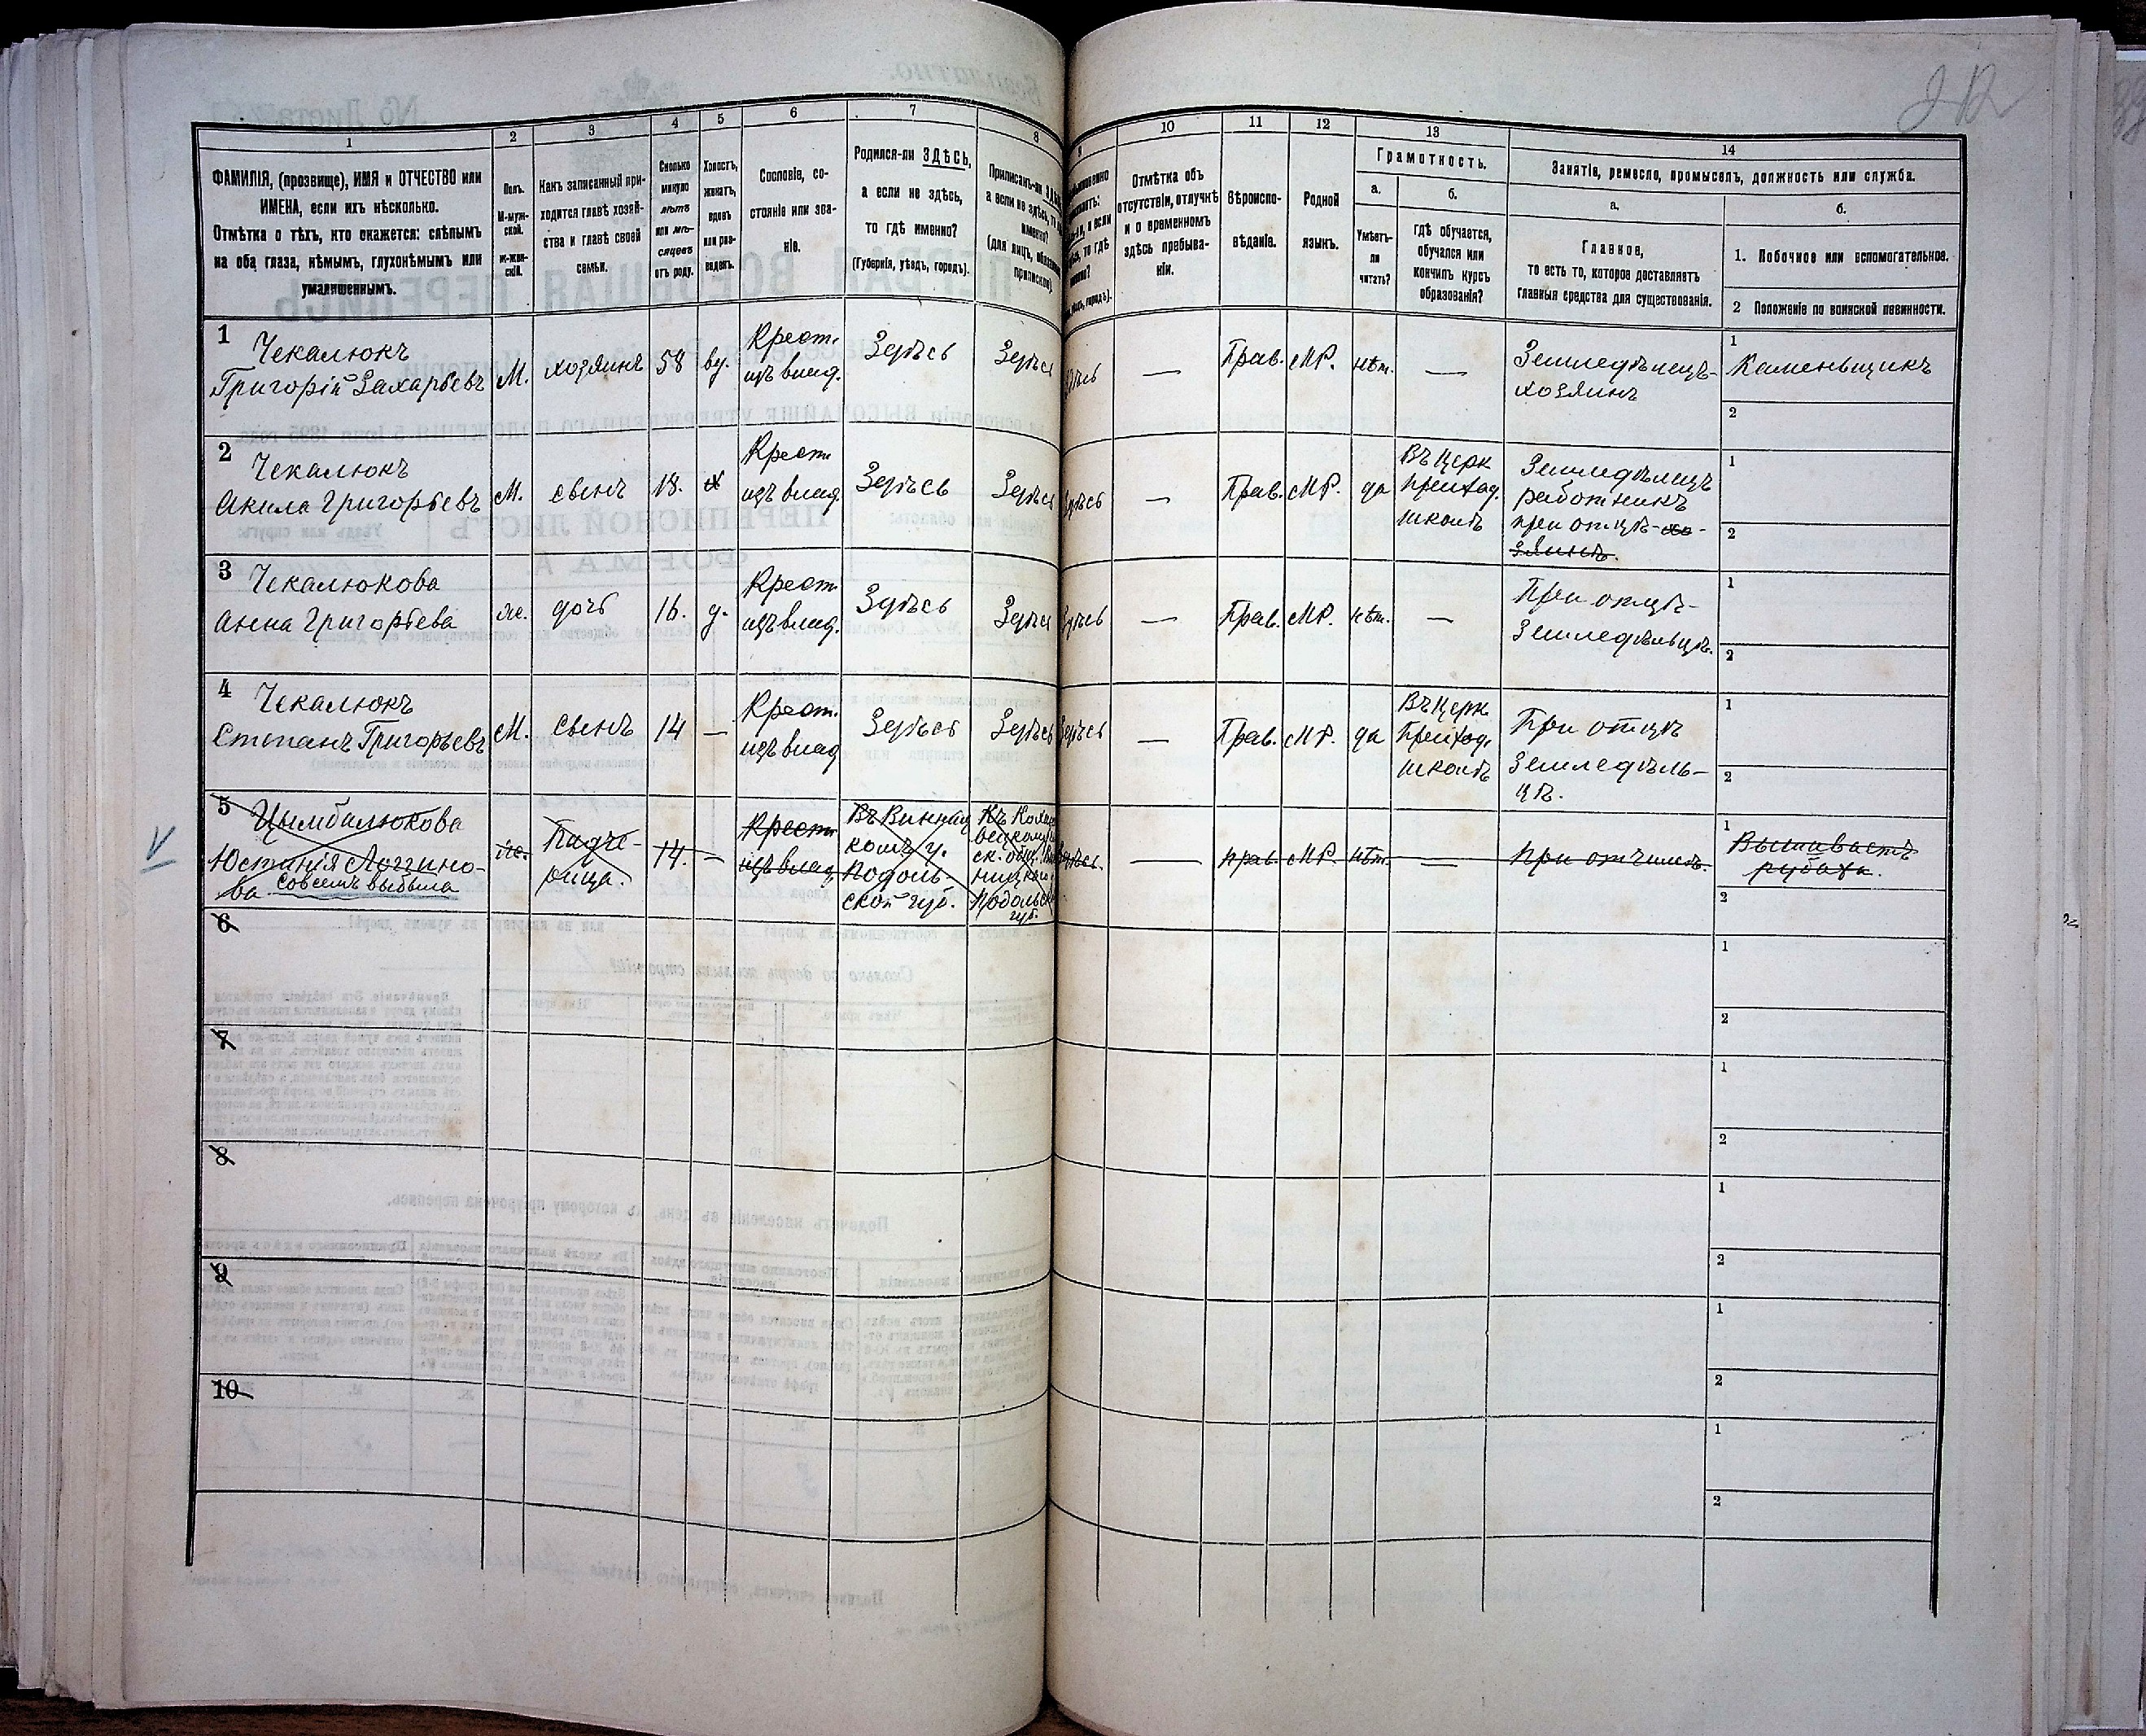 1 2 3 4 5 6 7 8 10 11 12 13 14
ФАМИЛІЯ, (прозвище), ИМЯ и ОТЧЕСТВО или
ИМЕНА, если ихъ нѣсколько.
Отмѣтка о тѣхъ, кто окажется: слѣпымъ
на оба глаза, нѣмымъ, глухонѣмымъ или
умалишеннымъ.
Полъ.
М-муж-
ской.
Ж-жен-
скій.
Какъ записанный при-
ходится главѣ хозяй-
ства и главѣ своей
семьи.
Сколько
минуло
лѣтъ
или мѣ-
сяцевъ
отъ роду.
Холостъ,
женатъ,
вдовъ
или раз-
веденъ.
Сословіе, со-
стояніе или зва-
ніе.
Родился-ли ЗДѢСЬ,
а если не здѣсь,
то гдѣ именно?
(Губернія, уѣздъ, городъ).
Отмѣтка объ
отсутствіи, отлучкѣ
и о временномъ
здѣсь пребыва-
ніи.
Вѣроиспо-
вѣданіе.
Родной
языкъ.
Грамотность.
а.
Умѣетъ-
ли
читать?
б.
гдѣ обучается,
обучался или
кончилъ курсъ
образованія?
Занятія, ремесло, промыселъ, должность или служба.
а.
Главное,
то есть то, которое доставляетъ
главныя средства для существованія.
б.
1. Побочное или вспомогательное.
2 Положеніе по воинской повинности.
1
Чекалюкъ
Григорій Захарьевъ
М.
хозяинъ
58
вд.
Крест.
изъ влад.
Здѣсь
Здѣсь
—
Прав.
МР.
нѣт.
—
Земледѣлецъ-
хозяинъ
1
Каменьщикъ
2
2
Чекалюкъ
Акила Григорьевъ
М.
свынъ
18.
х
Крест.
изъ влад.
Здѣсь
Здѣсь
—
Прав.
МР.
да
Въ Церк
приход.
школѣ
Земледѣлецъ
работникъ
при отцѣ-хо-
зяинѣ.
1
2
3
Чекалюкова
Анна Григорьева
ж.
дочь
16.
д.
Крест.
изъ влад.
Здѣсь
Здѣсь
—
Прав.
МР.
нѣт.
—
При отцѣ-
Земледѣльцѣ.
1
2
4
Чекалюкъ
Степанъ Григорьевъ
М.
свынъ
14
—
Крест.
изъ влад
Здѣсь
Здѣсь
—
Прав.
МР.
да
Въ Церк
приход.
школѣ
При отцѣ
Земледѣль-
цѣ.
1
2
5
Цымбалюкова
Юстинія Логгино-
ва совсемъ выбыла
ж.
Падче-
рица.
14.
—
Крест
изъ влад
Въ Винниц
комъ у.
Подоль-
ской губ.
Подольск
губ.
—
прав.
МР.
нѣт.
—
при отчимѣ.
1
Вышиваетъ
рубахи.
2
6
1
2
7
1
2
8
1
2
9
1
2
10
1
2